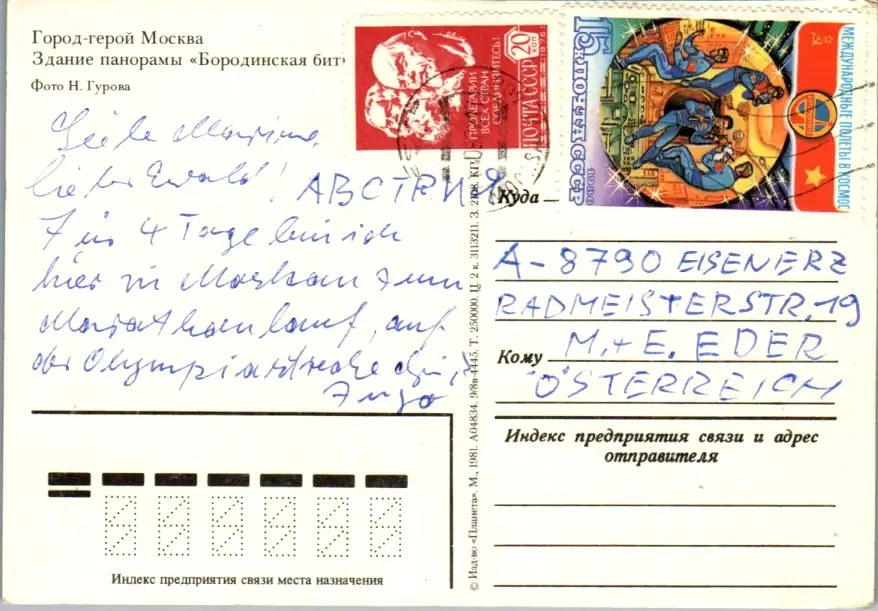 Город-герой Москва
Здание панорамы «Бородинская бит
Фото Н. Гурова
Liebe
lieber Ewald!
АВСТРИЯ
4 Tage bin ich
hier in Moskau zum
Marathonlauf, auf
der Olympiastrecke
Ingo
ПРОЛЕТАРИИ
ВСЕХ СТРАН
СОЕДИНЯЙТЕСЬ!
ПОЧТА СССР
20 КОП
1976
15К ПОЧТА СССР
1980
МЕЖДУНАРОДНЫЕ ПОЛЕТЫ В КОСМОС
Куда
A-8790 EISENERZ
RADMEISTERSTR. 19
Кому M. + E. EDER
ÖSTERREICH
Индекс предприятия связи и адрес
отправителя
Индекс предприятия связи места назначения
© Изд-во «Планета». М., 1981. А04834. 9/8в-4445. Т. 250000. Ц. 2 к. 3113211. З. 2108.